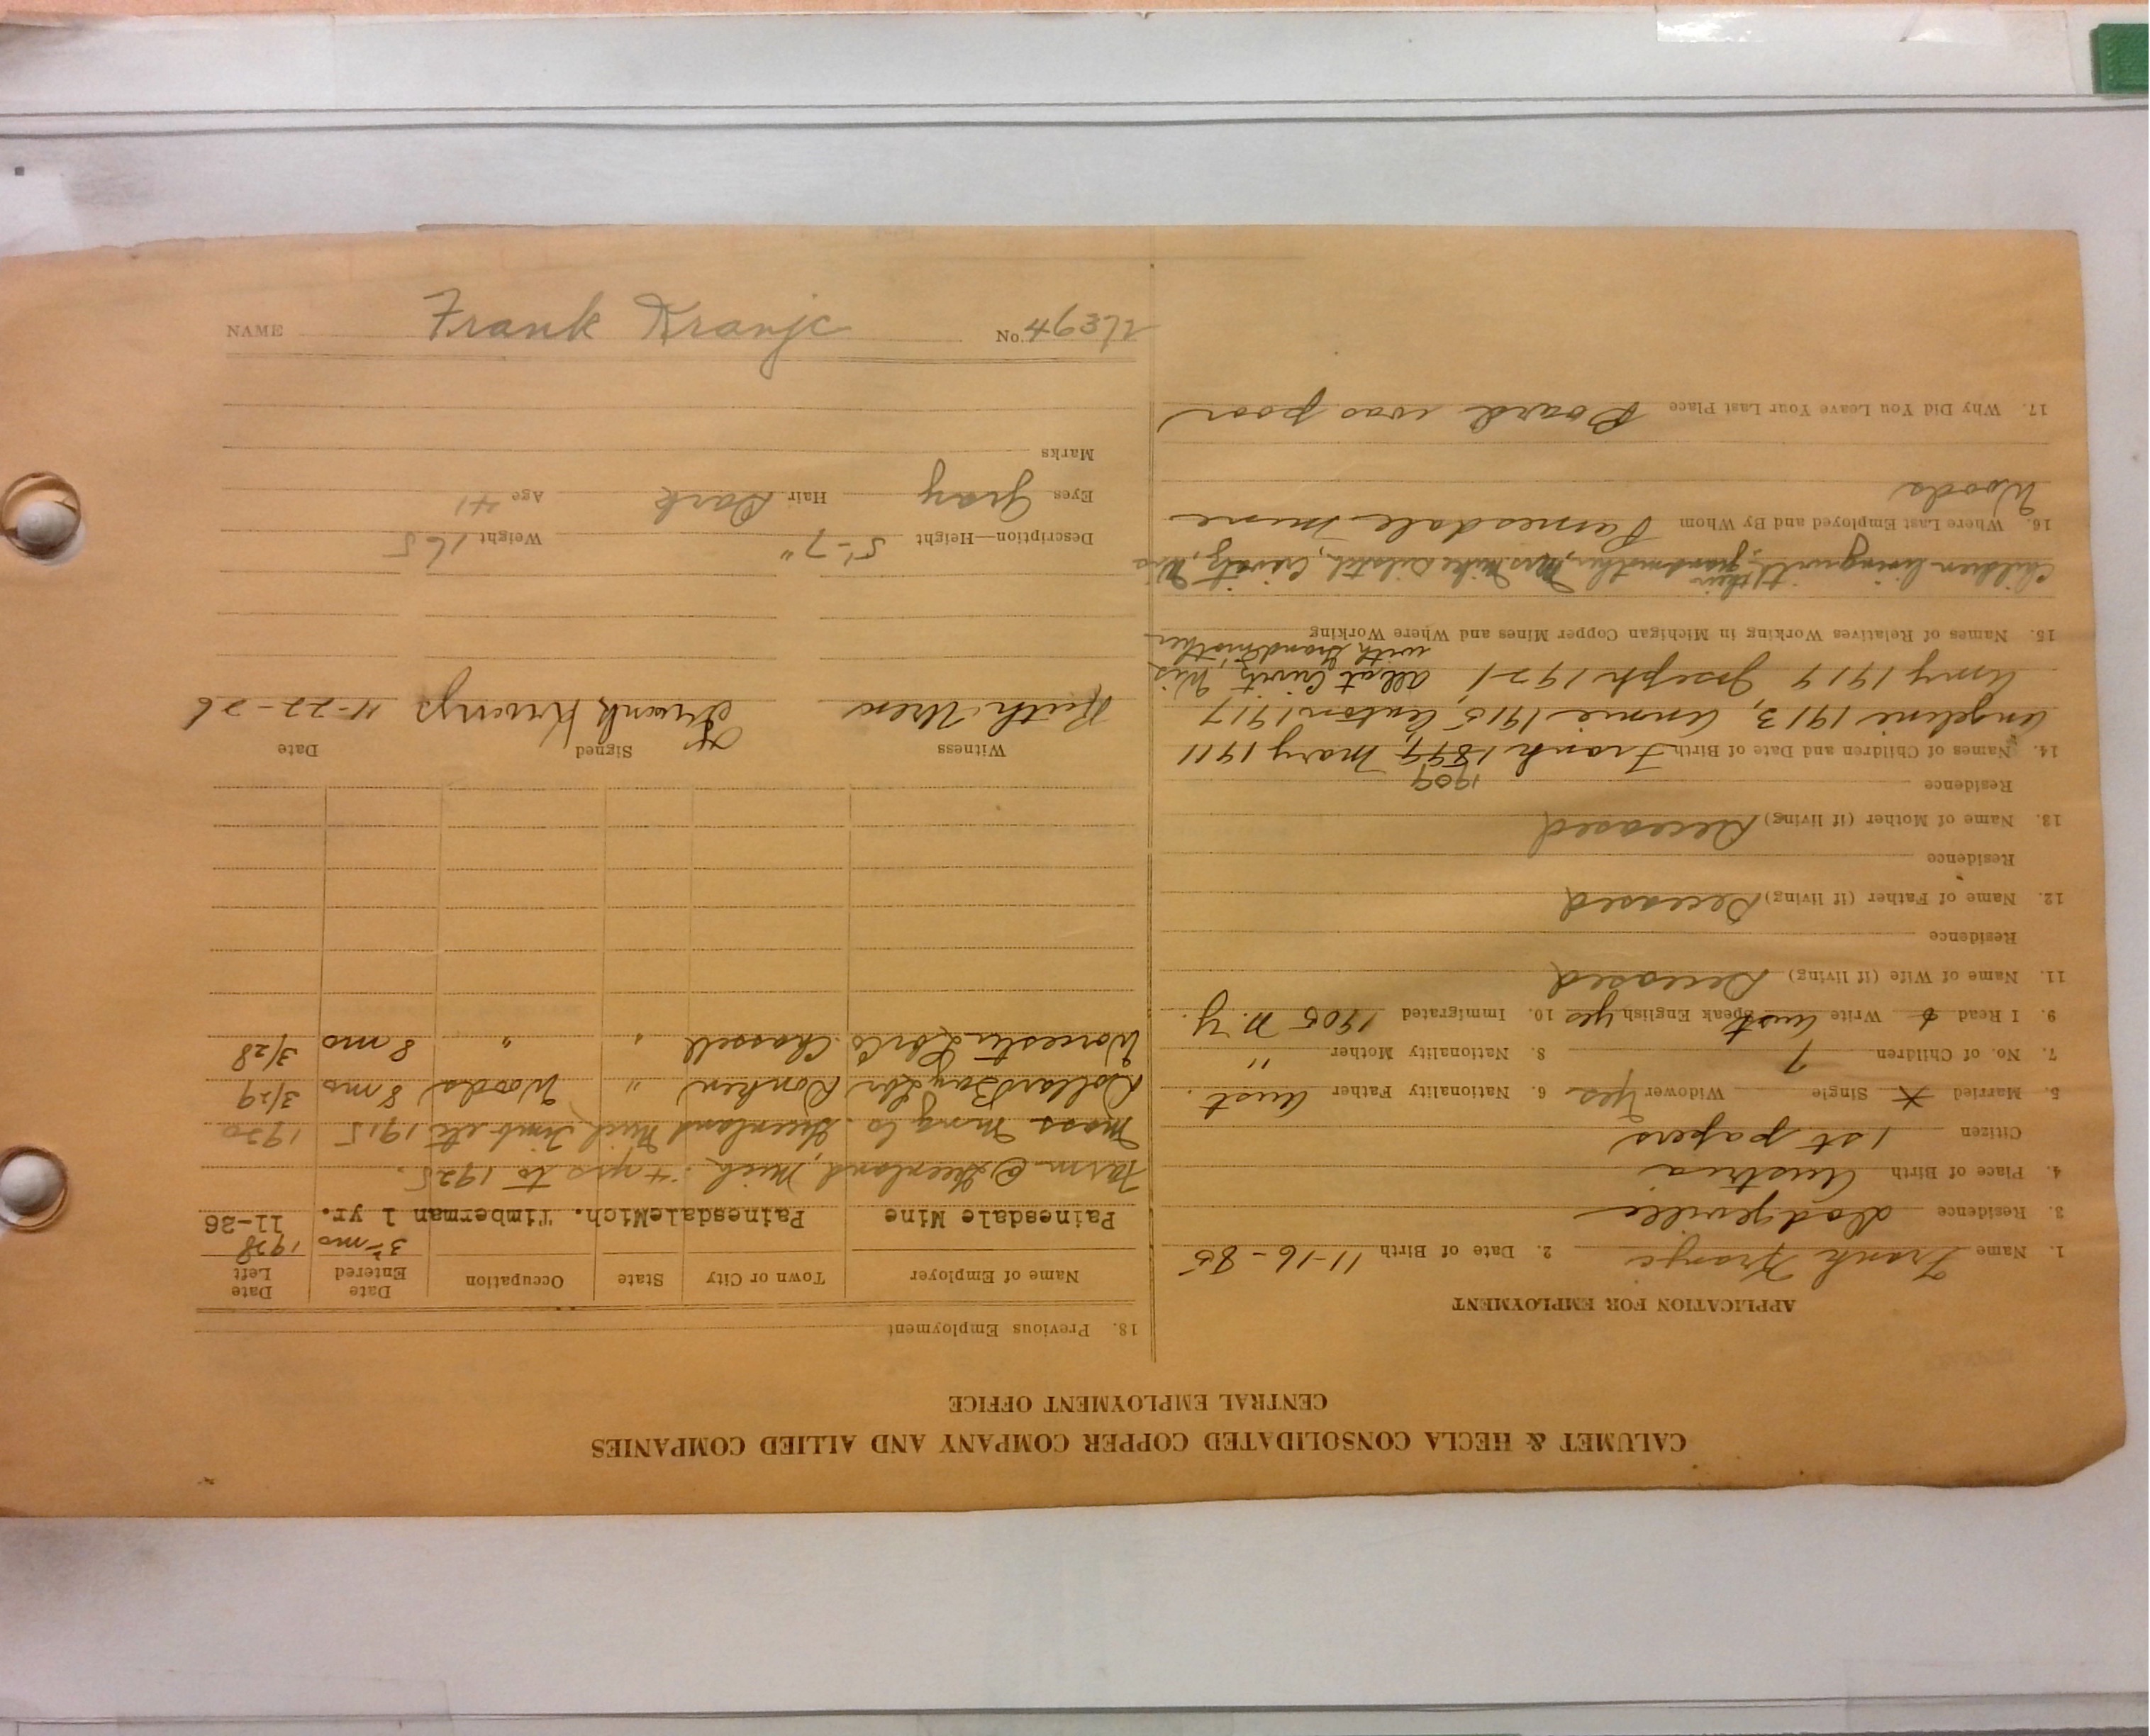 CALUMET & HECLA CONSOLIDATED COPPER COMPANY AND ALLIED COMPANIES
CENTRAL EMPLOYMENT OFFICE
APPLICATION FOR EMPLOYMENT
1. Name Frank Kranjc 2. Date of Birth 11-16-85
3. Residence Dodgeville
4. Place of Birth Austria
Citizen 1st papers
5. Married X Single Widower Yes 6. Nationality Father Aust.
7. No. of Children 7 8. Nationality Mother "
9. I Read & Write Aust Speak English yes 10. Immigrated 1905 N.Y.
11. Name of Wife (if living) Deceased
Residence
12. Name of Father (if living) Deceased
Residence
13. Name of Mother (if living) Deceased
Residence
1909
14. Names of Children and Date of Birth Frank 1899 Mary 1911
Angeline 1913, Annie 1915, Anton 1917
Amy 1919 Joseph 1921 all at Crivitz, Wis
with Grandmother
15. Names of Relatives Working in Michigan Copper Mines and Where Working
Children living with their grandmother, Mrs. Mike Crivitz, Wis
16. Where Last Employed and By Whom Painesdale Mine
Woods
17. Why Did You Leave Your Last Place Board was poor
18. Previous Employment
Name of Employer Town or City State Occupation Date Entered Date Left
3 mo 1928
Painesdale Mine Painesdale Mich. Timberman 1 yr. 11-26
Farm @ Greenland, Mich. 4 yrs to 1925.
Mass Mng Co. Greenland Mich Timb etc 1915 1920
Dollar Bay Lbr Donken " Woods 8 mo 3/29
Worcester Lbr Co. Chassell " " 8 mo 3/28
Witness Signed Date
Ruth Uren Frank Krangs 11-22-26
Description—Height 5'-7" Weight 165
Eyes Gray Hair Dark Age 41
Marks
NAME Frank Kranjc No. 46372